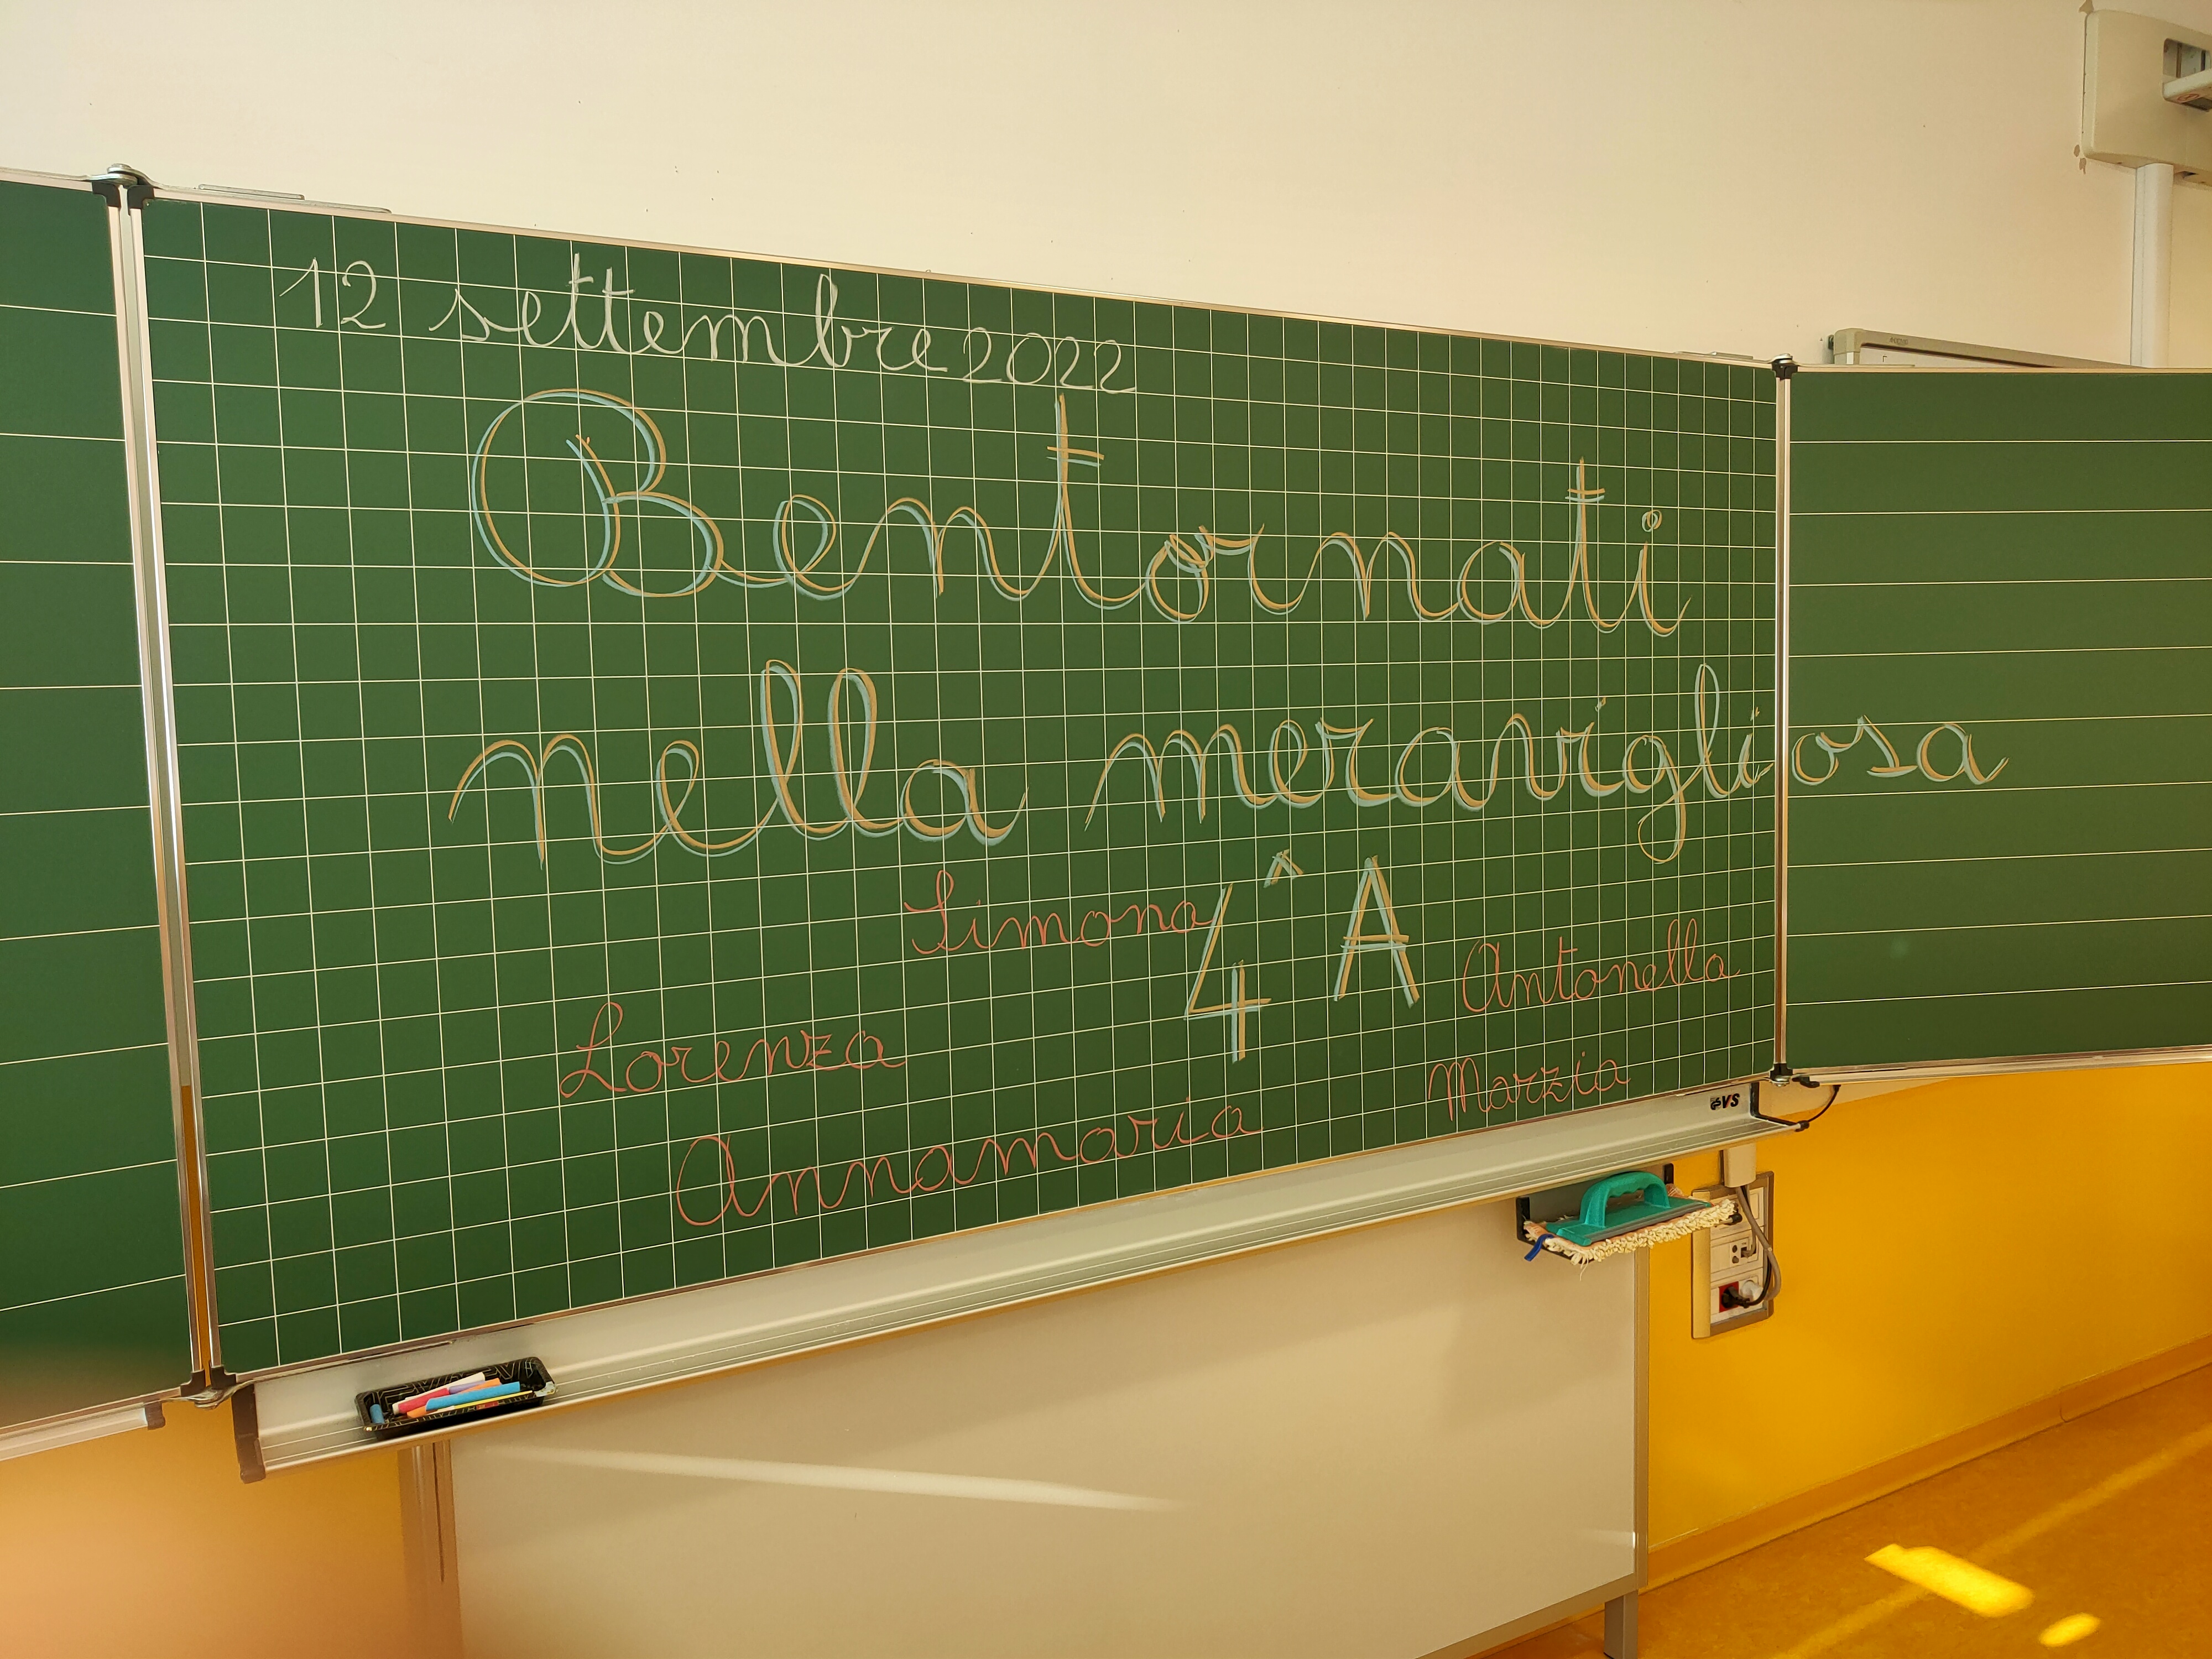 12 settembre 2022
Bentornati
nella meravigliosa
4^ A
Simona
Antonella
Lorenza
Marzia
Annamaria
VS